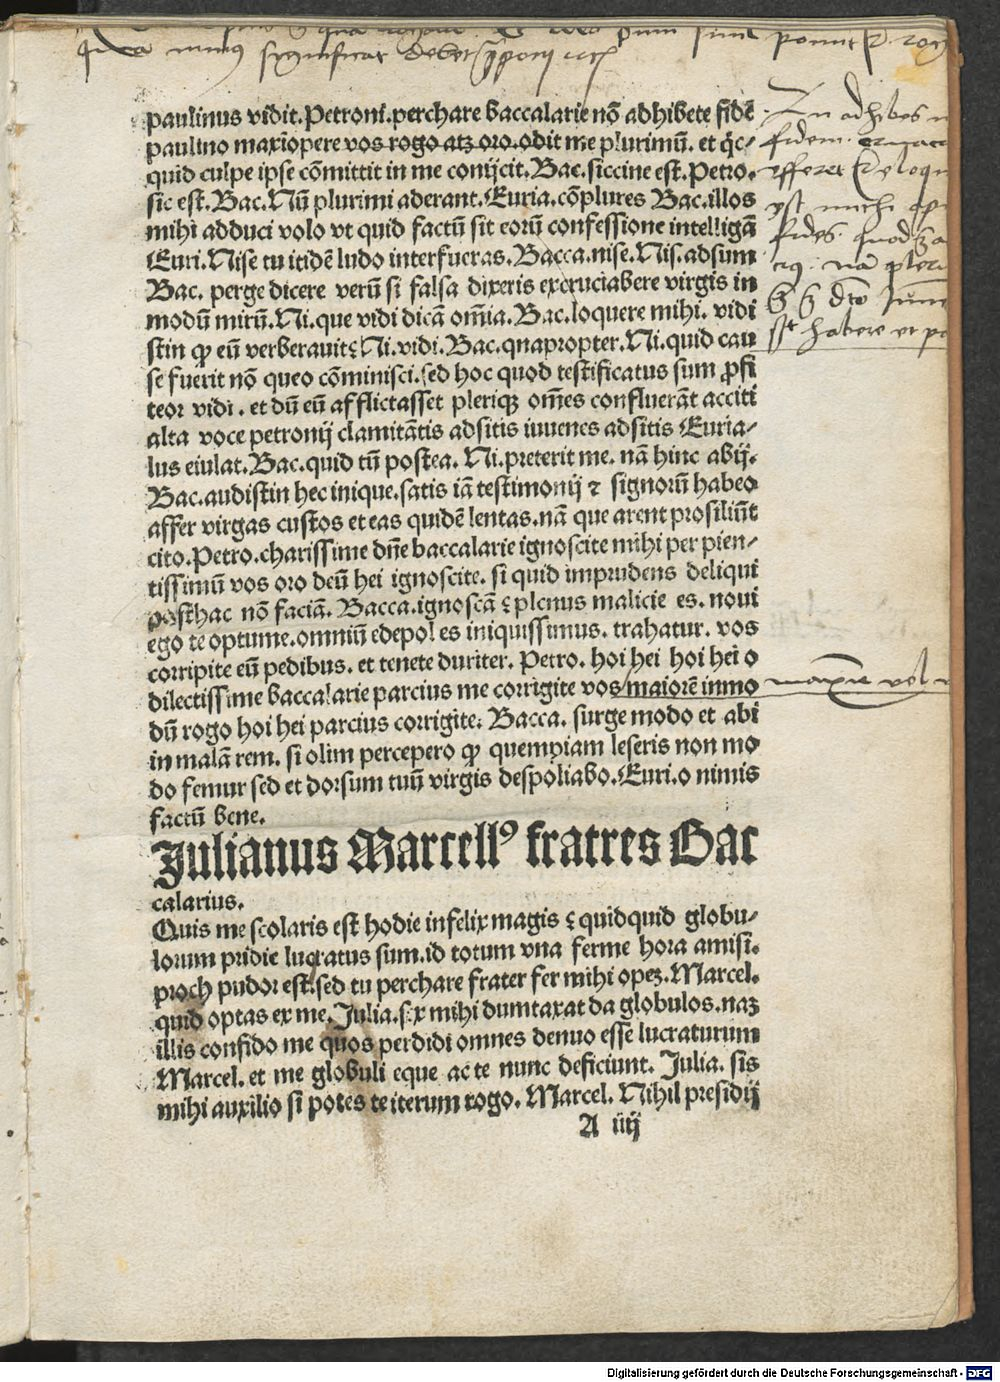 quia nimis significat debet
paulinus vidit. Petroni. perchare baccalarie nō adhibete fidē
paulino maxīopere vos rogo atꝫ oro. odit me plurimū. et q̄c-
quid culpe ipse cōmittit in me conijcit. Bac. siccine est. Petro.
sic est. Bac. Nū plurimi aderant. Euria. cōplures Bac. illos
mihi adduci volo vt quid factū sit eorū confessione intelligā
Euri. Nise tu itidē ludo interfueras. Bacca. nise. Nis. adsum
Bac. perge dicere verū si falsa dixeris excruciabere virgis in
modū mirū. Ni. que vidi dicā om̄ia. Bac. loquere mihi. vidi
stin ꝙ eū verberauit? Ni. vidi. Bac. quapropter. Ni. quid cau
se fuerit nō queo cōminisci. sed hoc quod testificatus sum ꝓfi
teor vidi. et dū eū afflictasset pleriqꝫ om̄es confluerāt acciti
alta voce petronij clamitātis adsitis iuuenes adsitis Euria-
lus eiulat. Bac. quid tū postea. Ni. preterit me. nā hinc abij.
Bac. audistin hec inique. satis iā testimonij ⁊ signorū habeo
affer virgas custos et eas quidē lentas. nā que arent prosiliūt
cito. Petro. charissime dn̄e baccalarie ignoscite mihi per pien-
tissimū vos oro deū hei ignoscite. si quid imprudens deliqui
posthac nō faciā. Bacca. ignoscā? plenus malicie es. noui
ego te optume. omniū edepol es iniquissimus. trahatur. vos
corripite eū pedibus. et tenete duriter. Petro. hoi hei hoi hei o
dilectissime baccalarie parcius me corrigite vos maiorē inmo
dū rogo hoi hei parcius corrigite. Bacca. surge modo et abi
in malā rem. si olim percepero ꝙ quempiam leseris non mo
do femur sed et dorsum tuū virgis despoliabo. Euri. o nimis
factū bene.
Julianus Marcellꝰ fratres Bac
calarius.
Quis me scolaris est hodie infelix magis? quidquid globu-
lorum pridie lucratus sum. id totum vna ferme hora amisi.
proch pudor est. sed tu perchare frater fer mihi opeꝫ. Marcel.
quid optas ex me. Julia. sex mihi dumtaxat da globulos. naꝫ
illis confido me quos perdidi omnes denuo esse lucraturum
Marcel. et me globuli eque ac te nunc deficiunt. Julia. sis
mihi auxilio si potes te iterum rogo. Marcel. Nihil presidij
A iiij
adhibes
fidem
fides
habere
Digitalisierung gefördert durch die Deutsche Forschungsgemeinschaft - DFG